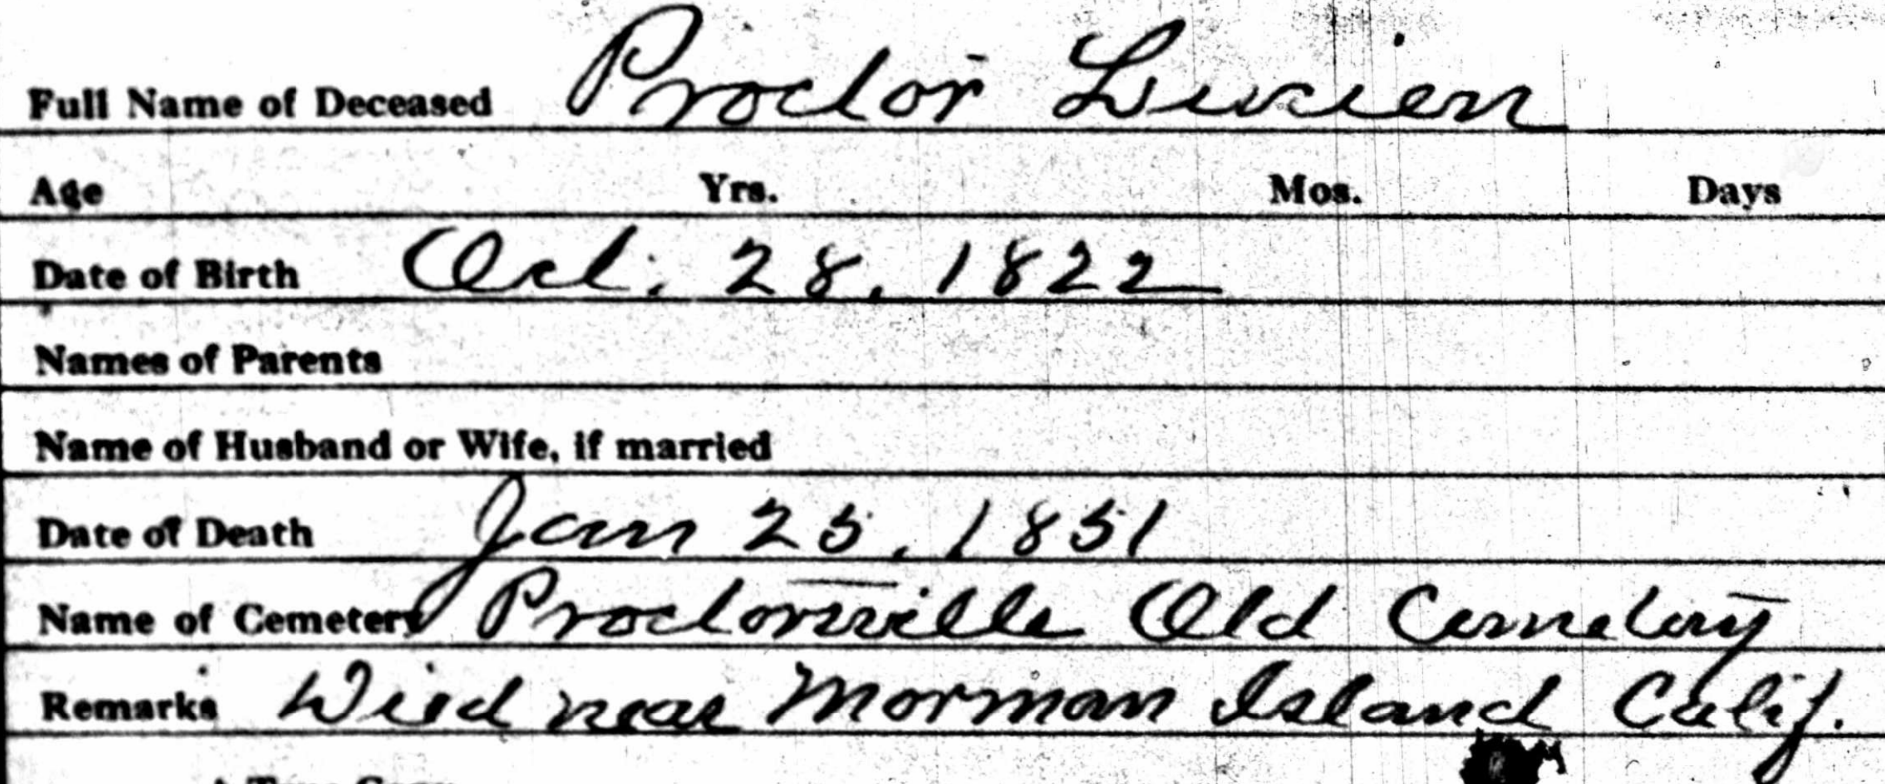 Full Name of Deceased Proctor Lucien
Age Yrs. Mos. Days
Date of Birth Oct. 28, 1822
Names of Parents
Name of Husband or Wife, if married
Date of Death Jan 25, 1851
Name of Cemetery Proctorsville Old Cemetery
Remarks Died near Morman Island Calif.
A True Copy